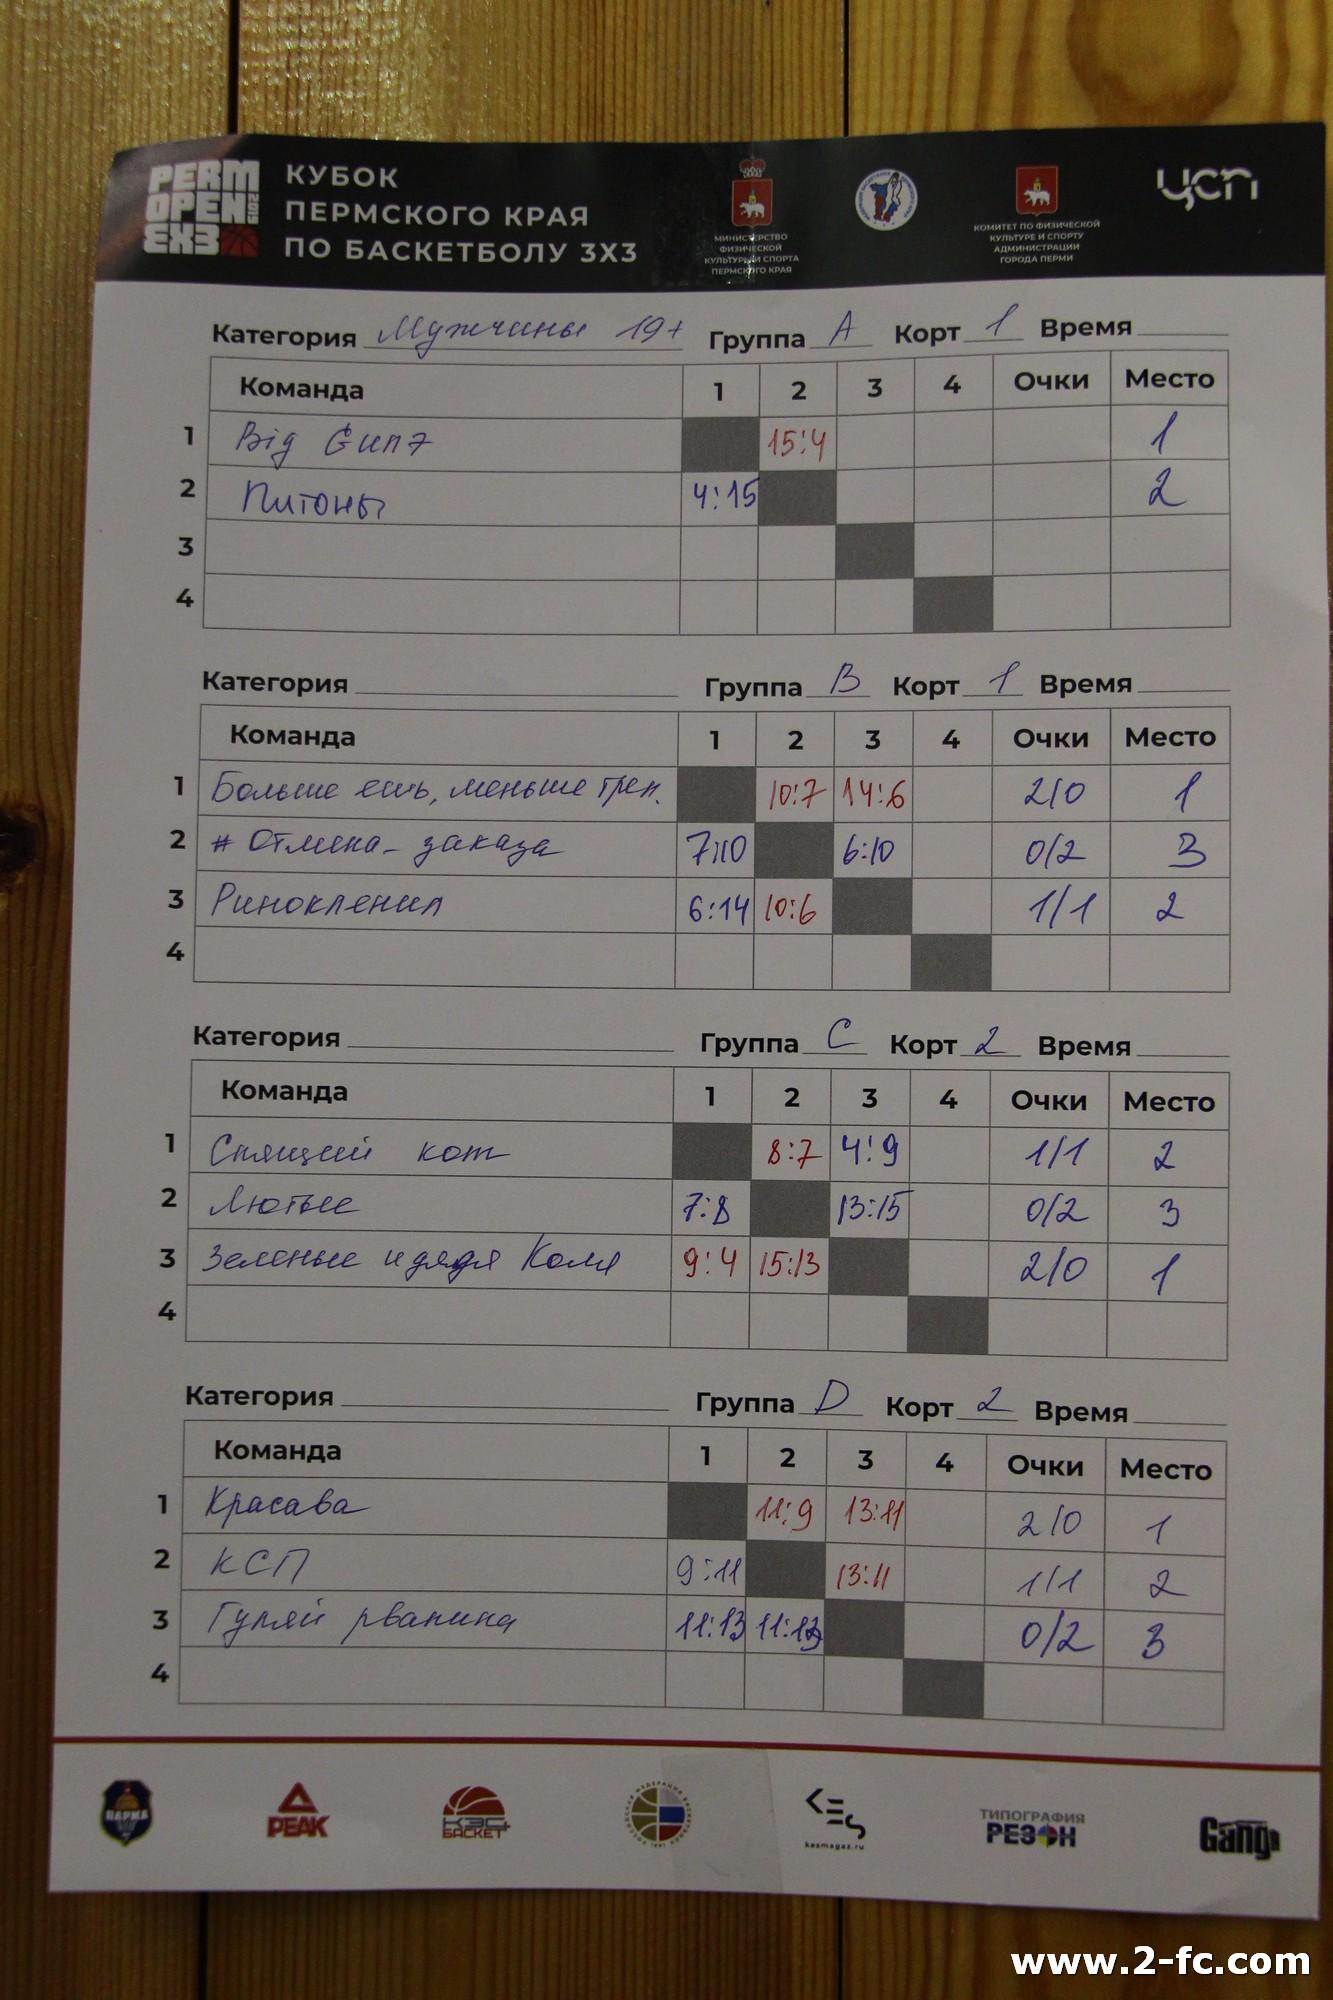 PERM
OPEN 2019
3X3
КУБОК
ПЕРМСКОГО КРАЯ
ПО БАСКЕТБОЛУ 3X3
МИНИСТЕРСТВО
ФИЗИЧЕСКОЙ
КУЛЬТУРЫ И СПОРТА
ПЕРМСКОГО КРАЯ
КОМИТЕТ ПО ФИЗИЧЕСКОЙ
КУЛЬТУРЕ И СПОРТУ
АДМИНИСТРАЦИИ
ГОРОДА ПЕРМИ
УСП
Категория Мужчины 19+ Группа А Корт 1 Время
Команда 1 2 3 4 Очки Место
1 Big 15:4 1
2 Питоны 4:15 2
3
4
Категория Группа B Корт 1 Время
Команда 1 2 3 4 Очки Место
1 Больше ешь, меньше трен. 10:7 14:6 2/0 1
2 # Отмена_заказа 7:10 6:10 0/2 3
3 Ринокленил 6:14 10:6 1/1 2
4
Категория Группа C Корт 2 Время
Команда 1 2 3 4 Очки Место
1 Спящий кот 8:7 4:9 1/1 2
2 Лютые 7:8 13:15 0/2 3
3 Зеленые и дядя Коля 9:4 15:13 2/0 1
4
Категория Группа D Корт 2 Время
Команда 1 2 3 4 Очки Место
1 Красава 11:9 13:11 2/0 1
2 КСП 9:11 13:11 1/1 2
3 Гуляй рванина 11:13 11:13 0/2 3
4
ПАРМА
PEAK
КЭС БАСКЕТ
KES
kesmagaz.ru
ТИПОГРАФИЯ
РЕЗОН
Gang
www.2-fc.com